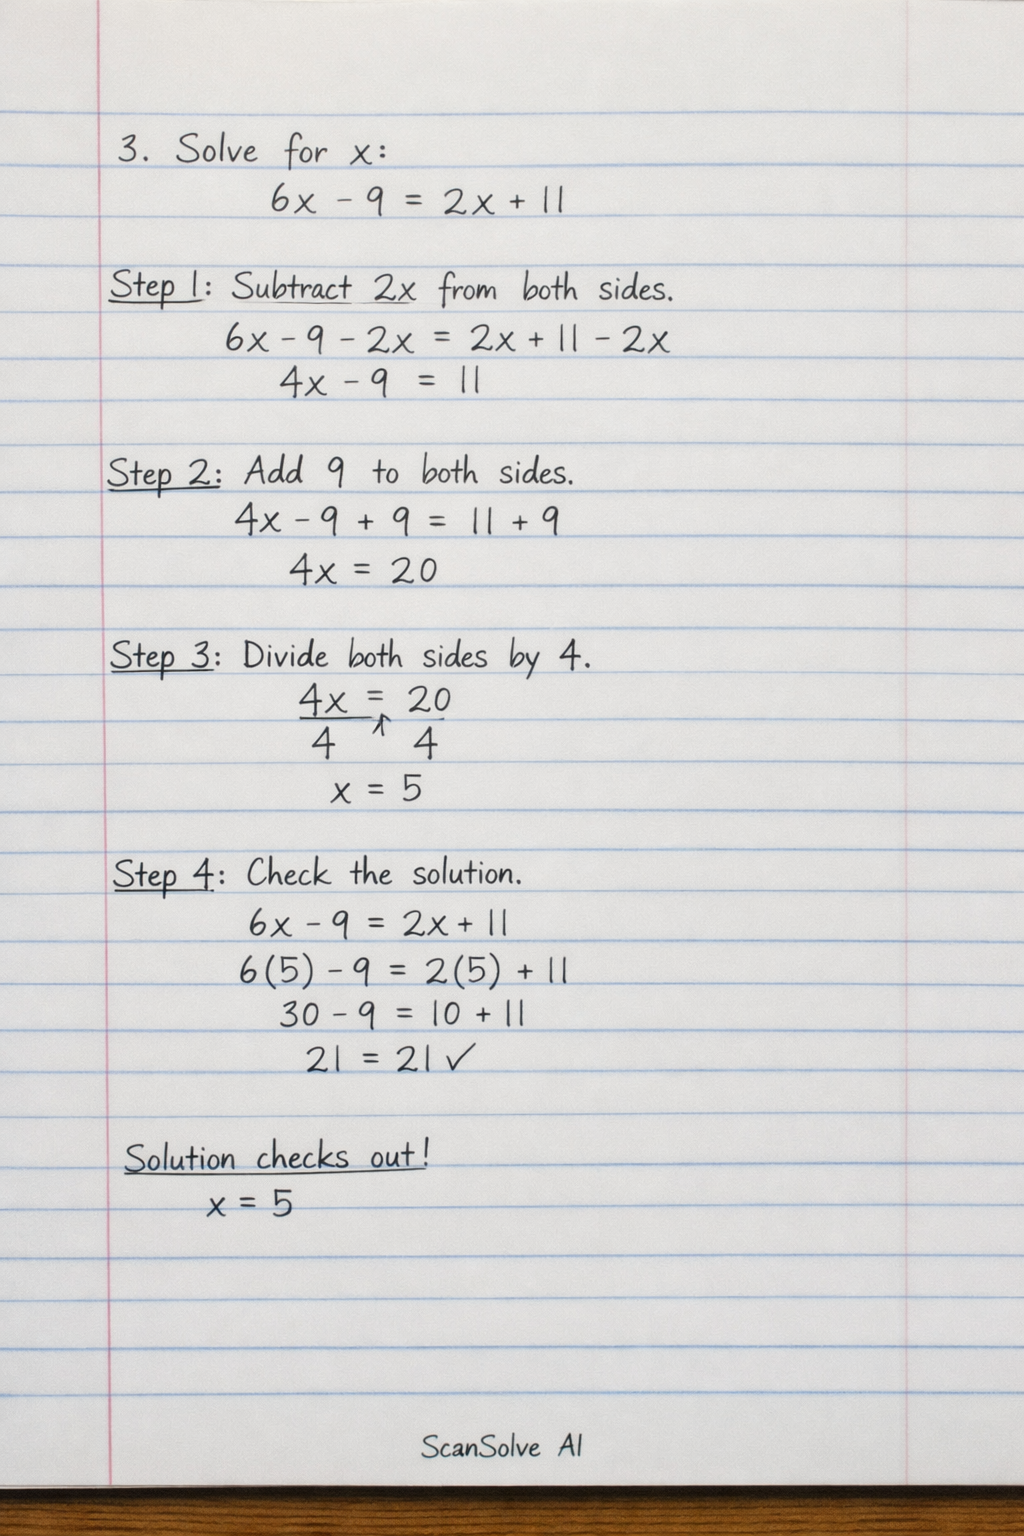 3. Solve for x:
6x - 9 = 2x + 11
Step 1: Subtract 2x from both sides.
6x - 9 - 2x = 2x + 11 - 2x
4x - 9 = 11
Step 2: Add 9 to both sides.
4x - 9 + 9 = 11 + 9
4x = 20
Step 3: Divide both sides by 4.
4x = 20
4 4
x = 5
Step 4: Check the solution.
6x - 9 = 2x + 11
6(5) - 9 = 2(5) + 11
30 - 9 = 10 + 11
21 = 21 ✓
Solution checks out!
x = 5
ScanSolve AI